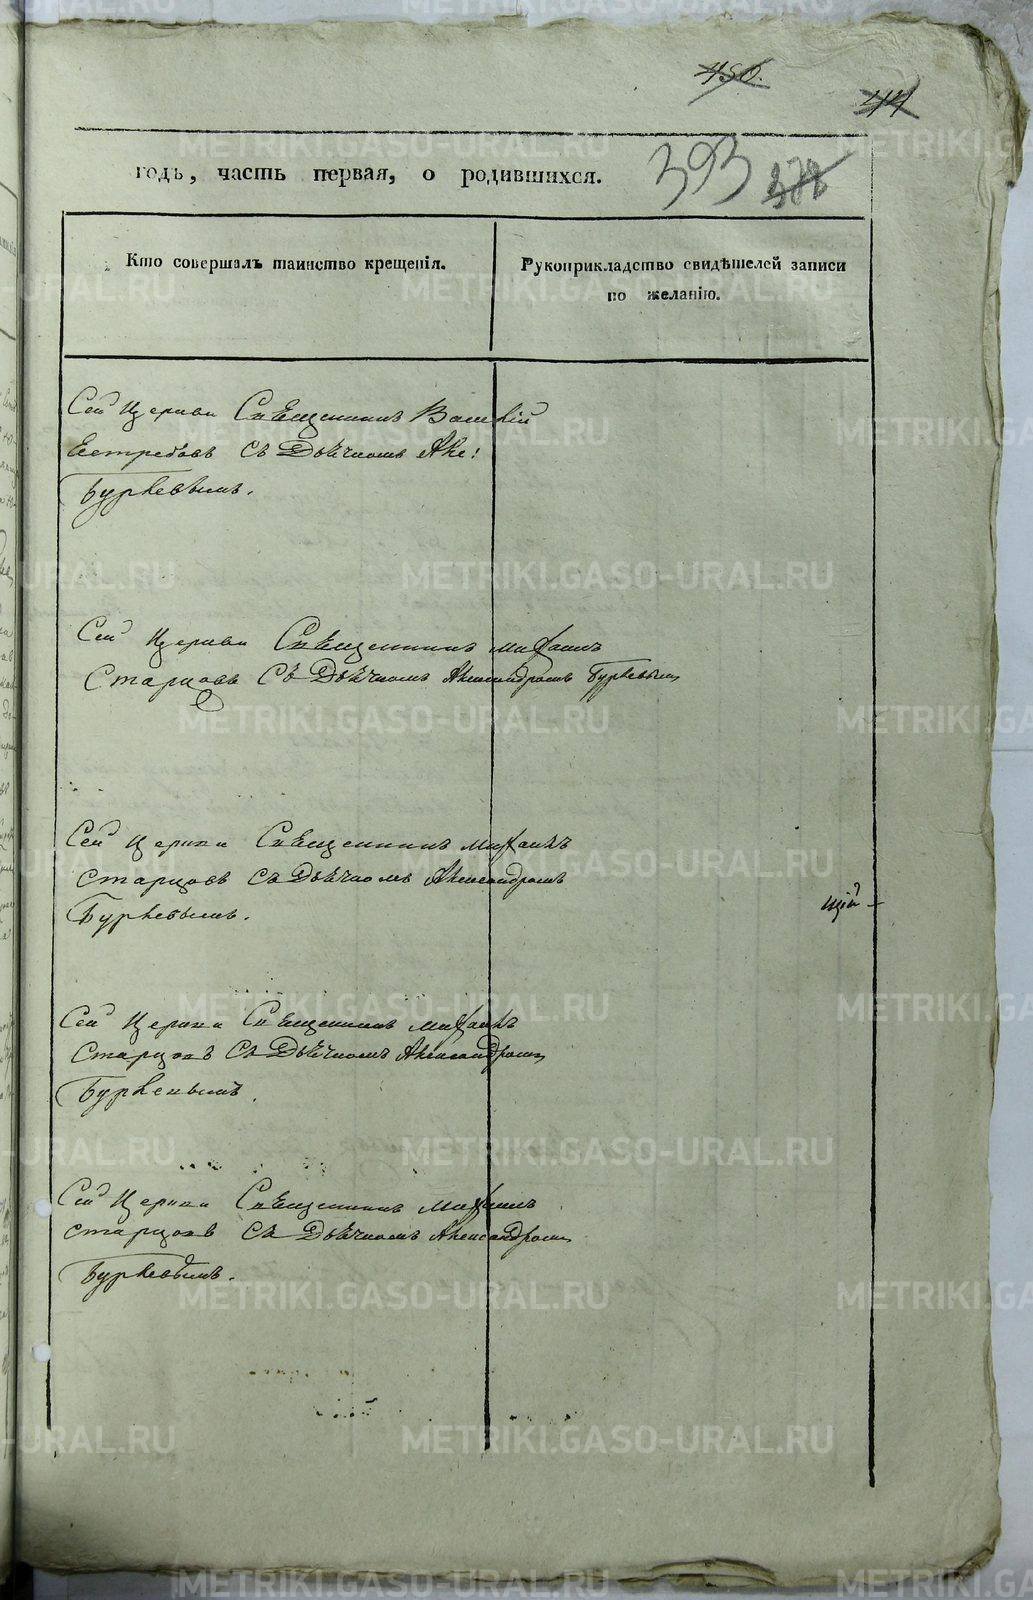 450.
414
393 378
годъ, часть первая, о родившихся.
Кто совершалъ таинство крещенія.
Рукоприкладство свидѣтелей записи
по желанію.
Сей Церкви Священникъ Василій
Ястребовъ съ Дьячкомъ Але:
Буркевымъ.
Сей Церкви Священникъ Михаилъ
Старцовъ съ Дьячкомъ Александромъ Буркевым
Сей Церкви Священникъ Михаилъ
Старцовъ съ Дьячкомъ Александромъ
Буркевымъ.
щій
Сей Церкви Священникъ Михаилъ
Старцовъ съ Дьячкомъ Александромъ
Буркевымъ.
Сей Церкви Священникъ Михаилъ
Старцовъ съ Дьячкомъ Александромъ
Буркевымъ.
METRIKI.GASO-URAL.RU